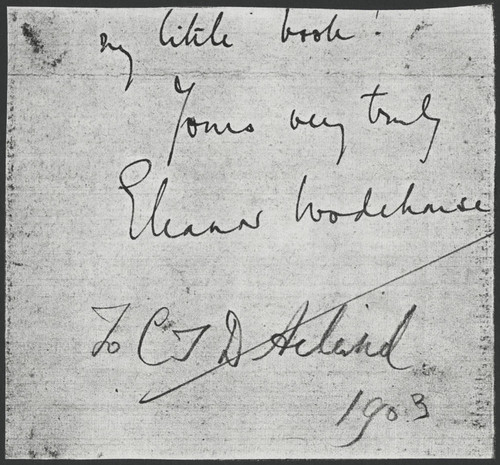 my little book!
Yours very truly
Eleanor Wodehouse
To C T D Acland
1903